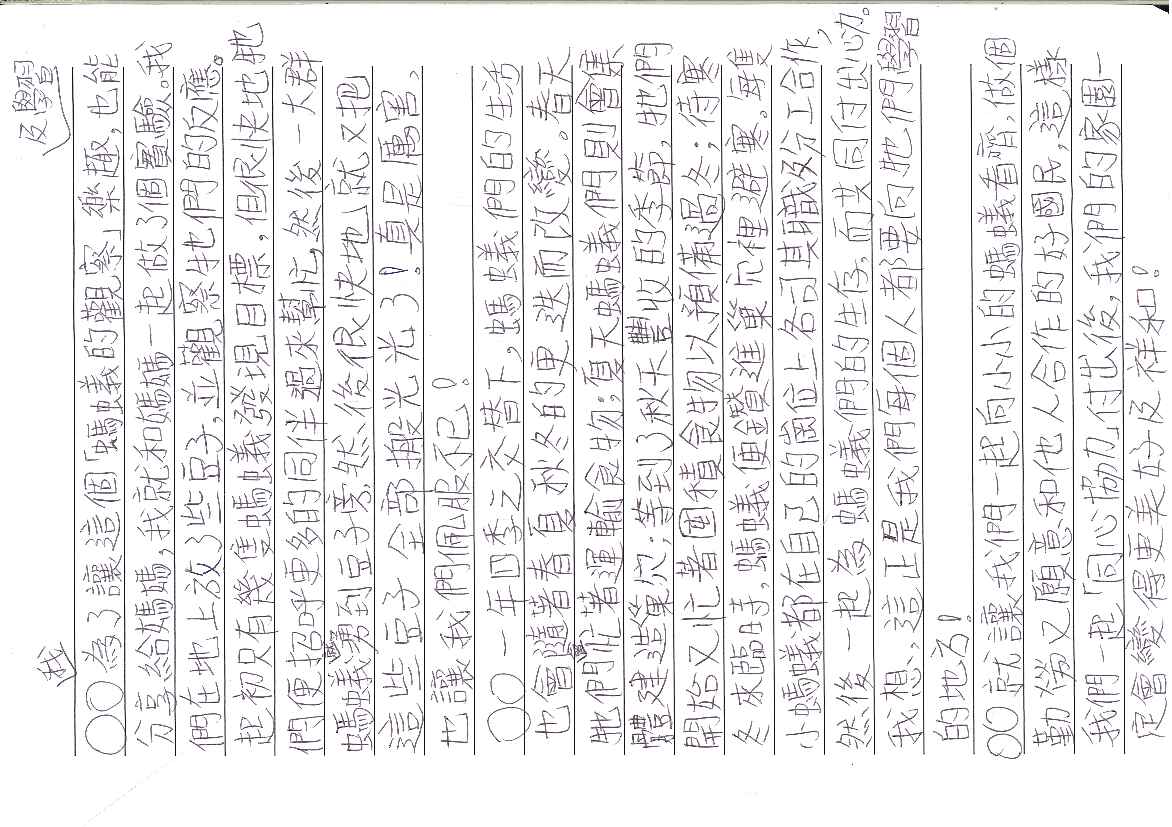 我
及學習
○○為了讓這個「螞蟻的觀察」樂趣,也能
分享給媽媽,我就和媽媽一起做了個實驗。我
們在地上放了些豆子,並觀察牠們的反應。
起初只有幾隻螞蟻發現目標,但很快地牠
們便招呼更多的同伴過來幫忙,然後一大群
螞蟻到豆子旁,然後很快地就又把
這些豆子全部搬光光了!真是厲害,
也讓我們佩服不已!
○○一年四季之交替下,螞蟻們的生活
也會隨著春夏秋冬的更迭而改變。春天
牠們忙著運輸食物;夏天螞蟻們則會集
體建造巢穴;等到了秋天豐收的季節,牠們
開始又忙著囤積食物以預備過冬;待寒
冬來臨時,螞蟻便鑽進巢穴裡避寒。每隻
小螞蟻都在自己的崗位上各司其職及分工合作,
然後一起為螞蟻們的生存,而共同付出心力。
我想,這正是我們每個人都要向牠們學習
的地方!
○○就讓我們一起向小小的螞蟻看齊,做個
勤勞又願意和他人合作的好國民,這樣
我們一起「同心協力」付出後,我們的家園一
定會變得更美好及祥和!